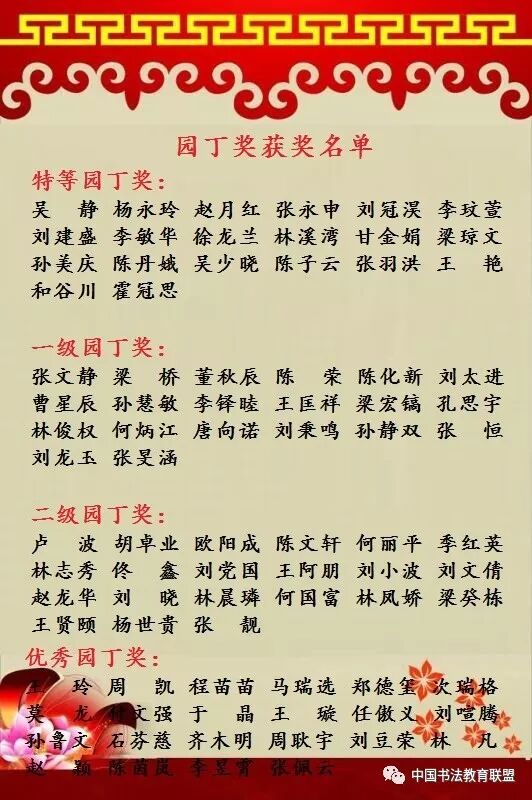 园丁奖获奖名单
特等园丁奖：
吴 静 杨永玲 赵月红 张永申 刘冠淏 李玟萱
刘建盛 李敏华 徐龙兰 林溪湾 甘金娟 梁琼文
孙美庆 陈丹娥 吴少晓 陈子云 张羽洪 王 艳
和谷川 霍冠思
一级园丁奖：
张文静 梁 桥 董秋辰 陈 荣 陈化新 刘太进
曹星辰 孙慧敏 李铎睦 王匡祥 梁宏镐 孔思宇
林俊权 何炳江 唐向诺 刘秉鸣 孙静双 张 恒
刘龙玉 张昊涵
二级园丁奖：
卢 波 胡卓业 欧阳成 陈文轩 何丽平 季红英
林志秀 佟 鑫 刘党国 王阿朋 刘小波 刘文倩
赵龙华 刘 晓 林晨璘 何国富 林凤娇 梁癸栋
王贤颐 杨世贵 张 靓
优秀园丁奖：
王 玲 周 凯 程苗苗 马瑞选 郑德玺 次瑞格
莫 龙 付文强 于 晶 王 璇 任傲义 刘喧腾
孙鲁文 石芬慈 齐木明 周耿宇 刘豆荣 林 凡
赵 颖 陈茵岚 李昱霄 张佩云
中国书法教育联盟